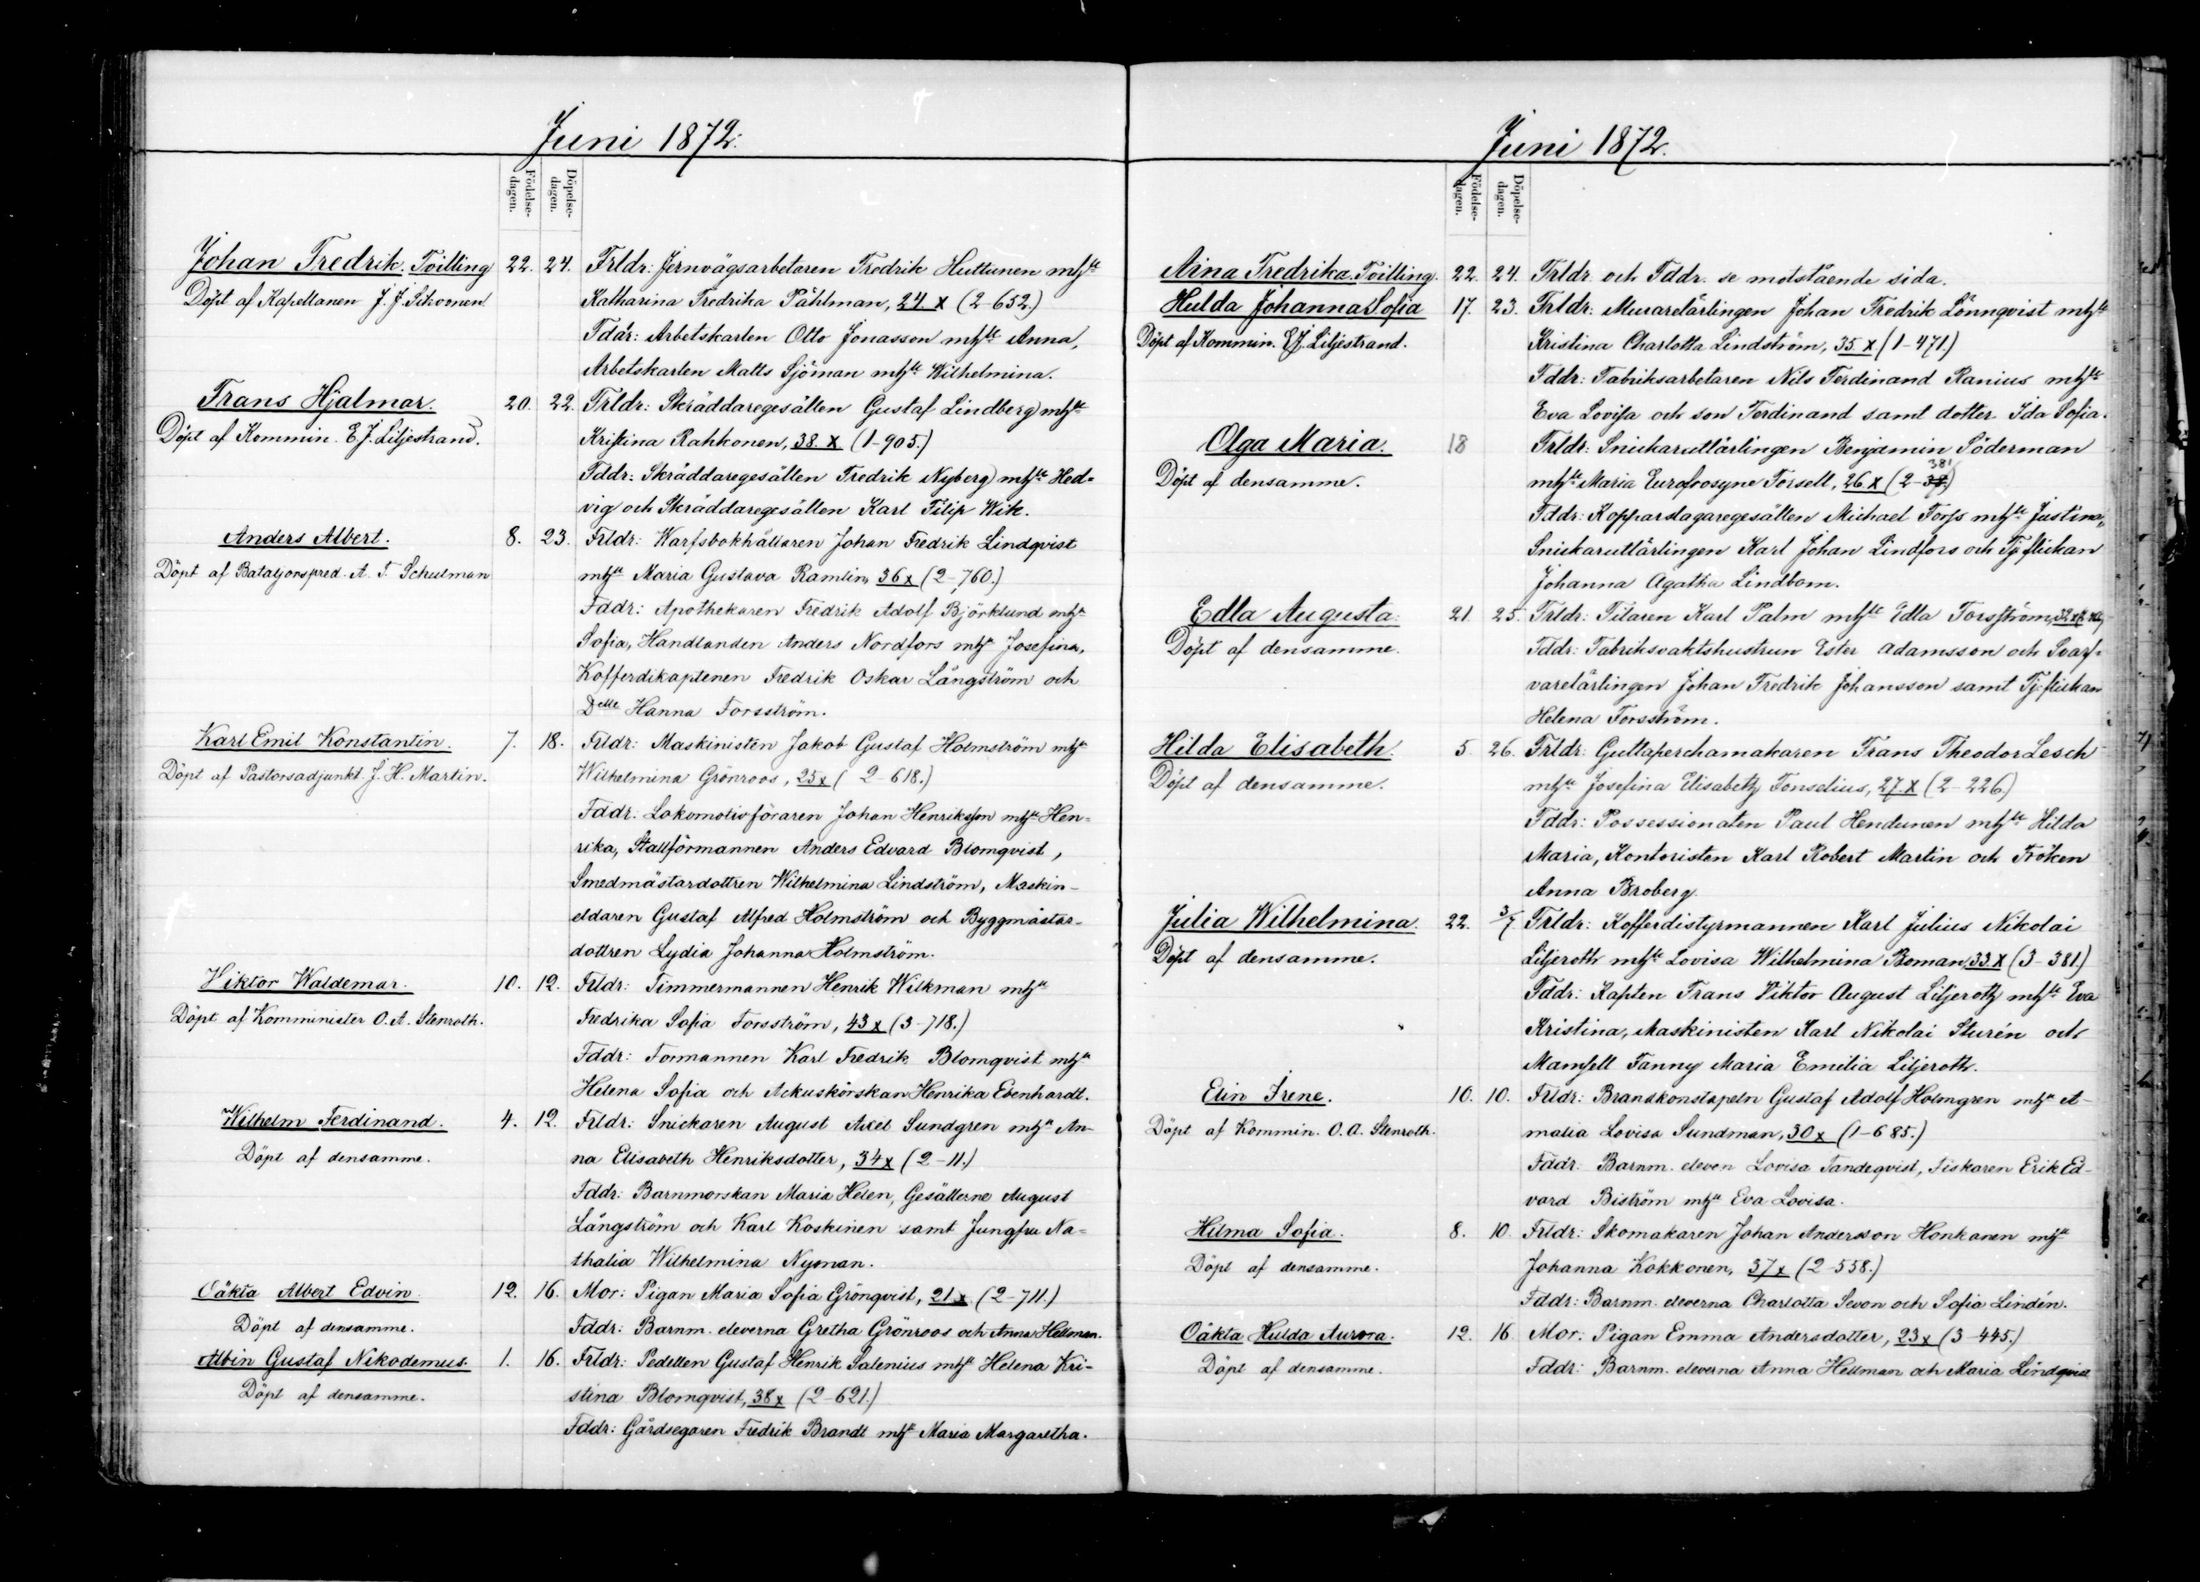 Juni 1872.
Födelse-dagen.
Döpelse-dagen.
Johan Fredrik. Tvilling 22. 24. Frldr: Jernvägsarbetaren Fredrik Huttunen mhste
Döpt af Kapellanen J. J. Sihvonen. Katharina Fredrika Påhlman, 24 x (2-652.)
Fddr: Arbetskarlen Otto Jonasson mhste Anna,
Arbetskarlen Matts Sjöman mhste Wilhelmina.
Frans Hjalmar. 20. 22. Frldr: Skräddaregesällen Gustaf Lindberg mhste
Döpt af Kommin. E. J. Liljestrand. Kristina Rahkonen, 38. x (1-905.)
Fddr: Skräddaregesällen Fredrik Nyberg mhste Hed=
vig och Skräddaregesällen Karl Filip Wik.
Anders Albert. 8. 23. Frldr: Warfsbokhållaren Johan Fredrik Lindqvist
Döpt af Bataljonspred. A. F. Schulman mhste Maria Gustava Ramlin, 36 x (2-760.)
Fddr: Apothekaren Fredrik Adolf Björklund mhste
Sofia, Handlanden Anders Nordfors mhste Josefina,
Kofferdikaptenen Fredrik Oskar Långström och
Delle Hanna Forsström.
Karl Emil Konstantin. 7. 18. Frldr: Maskinisten Jakob Gustaf Holmström mhste
Döpt af Pastorsadjunkt J. H. Martin. Wilhelmina Grönroos, 25 x (2-618.)
Fddr: Lokomotivföraren Johan Henriksson mhste Hen=
rika, Stallförmannen Anders Edvard Blomqvist,
Smedmästardottren Wilhelmina Lindström, Maskin-
eldaren Gustaf Alfred Holmström och Byggmästar-
dottren Lydia Johanna Holmström.
Viktor Waldemar. 10. 12. Frldr: Timmermannen Henrik Wilkman mhste
Döpt af Komminister O. A. Stenroth. Fredrika Sofia Forsström, 43 x (3-718.)
Fddr: Formannen Karl Fredrik Blomqvist mhste
Helena Sofia och Ackuskörskan Henrika Ebenhardt.
Wilhelm Ferdinand. 4. 12. Frldr: Snickaren August Axel Sundgren mhste An-
Döpt af densamme. na Elisabeth Henriksdotter, 34 x (2-11.)
Fddr: Barnmorskan Maria Helen, Gesällerne August
Långström och Karl Koskinen samt Jungfru Na=
thalia Wilhelmina Nyman.
Oäkta Albert Edvin. 12. 16. Mor: Pigan Maria Sofia Grönqvist, 21 x (2-711.)
Döpt af densamme. Fddr: Barnm. eleverna Gretha Grönroos och Anna Hellman.
Albin Gustaf Nikodemus. 1. 16. Frldr: Pedellen Gustaf Henrik Salenius mhste Helena Kri-
Döpt af densamme. stina Blomqvist, 38 x (2-621.)
Fddr: Gårdsegaren Fredrik Brandt mhste Maria Margaretha.
Juni 1872.
Födelse-dagen.
Döpelse-dagen.
Aina Fredrika. Tvilling. 22. 24. Frldr och Fddr. se motstående sida.
Hulda Johanna Sofia 17. 23. Frldr: Murarelärlingen Johan Fredrik Lönnqvist mhste
Döpt af Kommin. E. J. Liljestrand. Kristina Charlotta Lindström, 35 x (1-471)
Fddr: Fabriksarbetaren Nils Ferdinand Ranius mhste
Eva Lovisa och son Ferdinand samt dotter Ida Sofia.
Olga Maria. 18 Frldr: Snickarutlärlingen Benjamin Söderman
Döpt af densamme. mhste Maria Eurofrosyne Forsell, 26 x (2-381)
Fddr: Kopparslagaregesällen Michael Forss mhste Justina,
Snickarutlärlingen Karl Johan Lindfors och Tj.flickan
Johanna Agatha Lindbom.
Edla Augusta. 21. 25. Frldr: Filaren Karl Palm mhste Edla Forsström, 32 x
Döpt af densamme. Fddr: Fabriksvaktshustrun Ester Adamsson och Svarf=
varelärlingen Johan Fredrik Johansson samt Tj.flickan
Helena Forsström.
Hilda Elisabeth. 5. 26. Frldr: Guttaperchamakaren Frans Theodor Lesch
Döpt af densamme. mhste Josefina Elisabeth Fonselius, 27. x (2-226)
Fddr: Possessionaten Paul Hendunen mhste Hilda
Maria, Kontoristen Karl Robert Martin och Fröken
Anna Broberg.
Julia Wilhelmina. 22. 3/7 Frldr: Kofferdistyrmannen Karl Julius Nikolai
Döpt af densamme. Liljeroth mhste Lovisa Wilhelmina Boman, 33. x (3-381.)
Fddr: Kapten Frans Viktor August Liljeroth mhste Eva
Kristina, Maskinisten Karl Nikolai Sturén och
Mamsell Fanny Maria Emilia Liljeroth.
Elin Irene. 10. 10. Frldr: Brandkonstapeln Gustaf Adolf Holmgren mhste A-
Döpt af Kommin. O. A. Stenroth. malia Lovisa Sundman, 30 x (1-685.)
Fddr. Barnm. eleven Lovisa Tandeqvist, Fiskaren Erik Ed-
vard Biström mhste Eva Lovisa.
Hilma Sofia. 8. 10. Frldr: Skomakaren Johan Andersson Honkanen mhste
Döpt af densamme. Johanna Kokkonen, 37 x (2-558.)
Fddr: Barnm. eleverna Charlotta Sevon och Sofia Lindén.
Oäkta Hulda Aurora. 12. 16. Mor: Pigan Emma Andersdotter, 23 x (3-445.)
Döpt af densamme. Fddr: Barnm. eleverna Anna Hellman och Maria Lindqvist